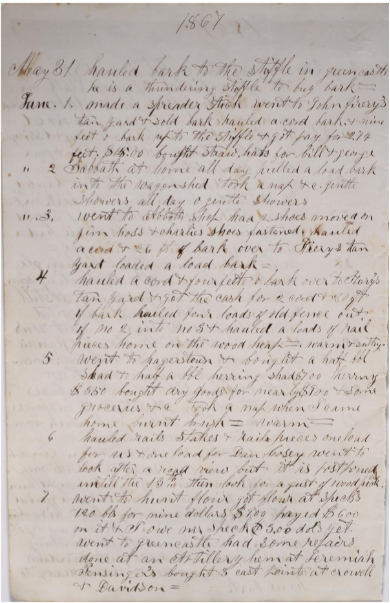 1867
May 31 hauled bark to the stiffle in greencastle
he is a thundering stiffle to buy bark =
June. 1. made a spreader stick went to John
tan yard & sold bark hauled a cord bark & nine
feet o bark up to the stiffle & got pay for 274
feet. bought straw hats for bill & george
" 2 Sabbath at home all day pulled a load bark
into the wagonshed took a nap & c. gentle
showers all day o gentle showers
" 3, went to shop had 2 shoes moved on
jim hoss & charlies shoes fastened, hauled
a cord & 26 ft of bark over to tan
yard loaded a load bark =
4 hauled a cord & four feet o bark over to
tan yard & got the cash for 2 cord & ft
of bark hauled four loads of old fence out
of no 2, into no 5 & hauled a loads of rail
pieces home on the wood heap =. warm & sultry.
5 went to hagerstown & bought a half bbl
Shad & half a bbl herring Shad herring
bought dry goods for nearly & some
groceries & c took a nap when I came
home burnt brush = warm =
6 hauled rails Stakes & rails pieces one load
for us & one load for Dan went to
look after a road view but it is postponed
untill the 13th then look for a past of
7 went to hunt flour got flour at Specks
120 lbs for nine dollars payed $600
on it & I owe mr Speck $ 3,00 dols yet
went to greencastle had some repairs
done at an at Jeremiah
bought 3 cast points at crowell
& Davidson =